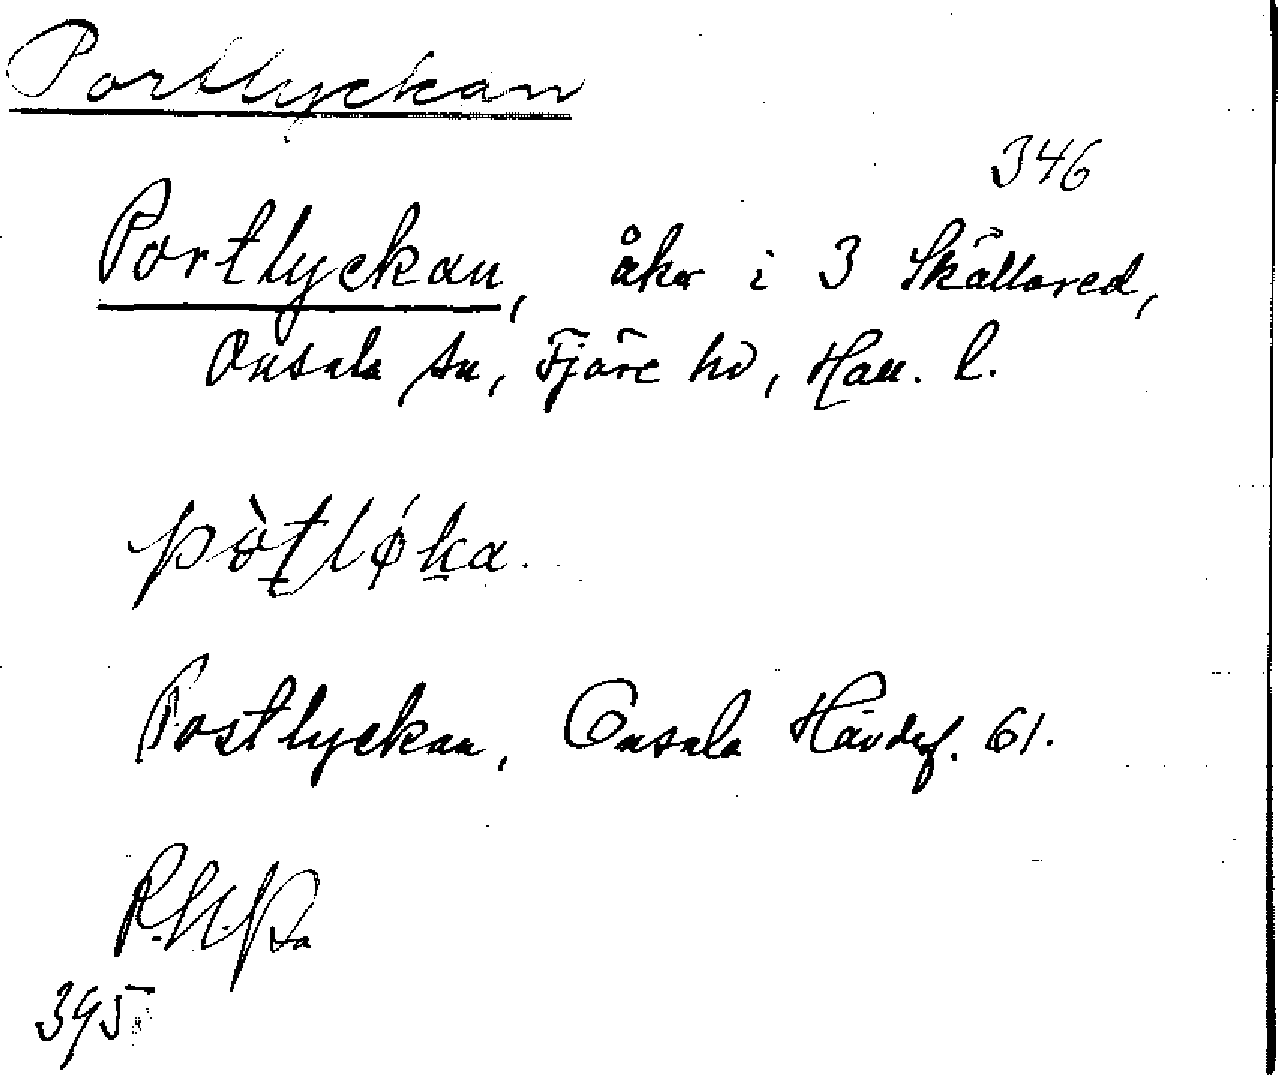 Portlyckan
346
Portlyckan, åker i 3 Skällared,
Onsala sn, Fjäre hd, Hall. l.
pòṯløḵa.
Postlyckan, Onsala Hävdsf. 61.
395